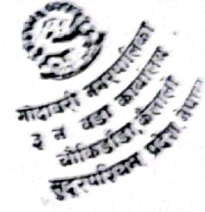 गोदावरी नगरपालिका
३ नं वडा कार्यालय
चौकिडाँडा, कैलाली
सुदूरपश्चिम प्रदेश, नेपाल